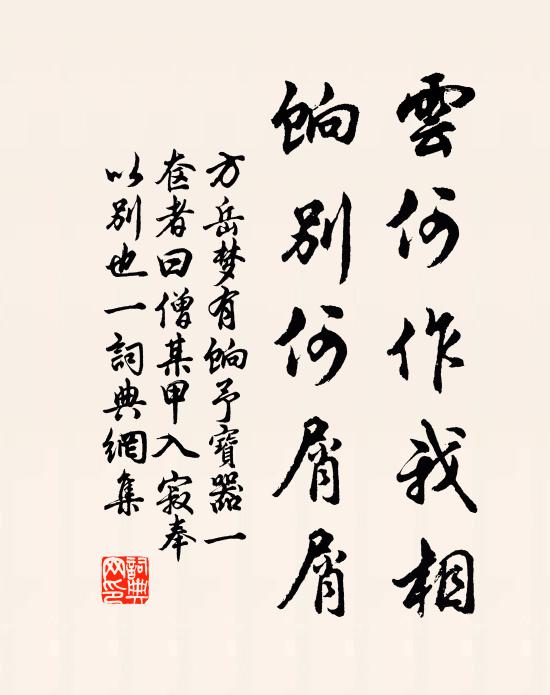 雲何作我相
餉別何屑屑
方岳梦有餉予寶器一
奁者曰僧某甲入寂奉
以別也一詞典網集
詞典网印